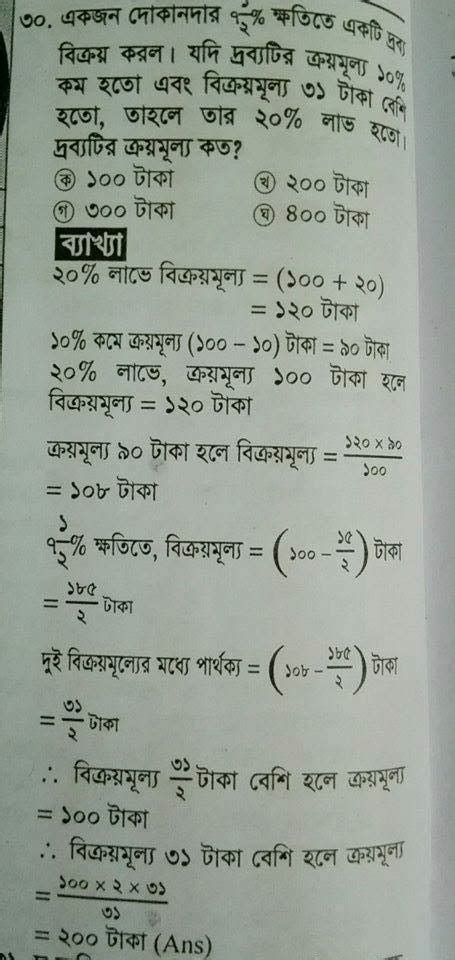 ৩০. একজন দোকানদার ৭১/২% ক্ষতিতে একটি দ্রব্য
বিক্রয় করল। যদি দ্রব্যটির ক্রয়মূল্য ১০%
কম হতো এবং বিক্রয়মূল্য ৩১ টাকা বেশি
হতো, তাহলে তার ২০% লাভ হতো।
দ্রব্যটির ক্রয়মূল্য কত?
ক ১০০ টাকা খ ২০০ টাকা
গ ৩০০ টাকা ঘ ৪০০ টাকা
ব্যাখ্যা
২০% লাভে বিক্রয়মূল্য = (১০০ + ২০)
= ১২০ টাকা
১০% কমে ক্রয়মূল্য (১০০ – ১০) টাকা = ৯০ টাকা
২০% লাভে, ক্রয়মূল্য ১০০ টাকা হলে
বিক্রয়মূল্য = ১২০ টাকা
ক্রয়মূল্য ৯০ টাকা হলে বিক্রয়মূল্য = ১২০ × ৯০/১০০
= ১০৮ টাকা
৭১/২% ক্ষতিতে, বিক্রয়মূল্য = (১০০ – ১৫/২) টাকা
= ১৮৫/২ টাকা
দুই বিক্রয়মূল্যের মধ্যে পার্থক্য = (১০৮ – ১৮৫/২) টাকা
= ৩১/২ টাকা
∴ বিক্রয়মূল্য ৩১/২ টাকা বেশি হলে ক্রয়মূল্য
= ১০০ টাকা
∴ বিক্রয়মূল্য ৩১ টাকা বেশি হলে ক্রয়মূল্য
= ১০০ × ২ × ৩১/৩১
= ২০০ টাকা (Ans)